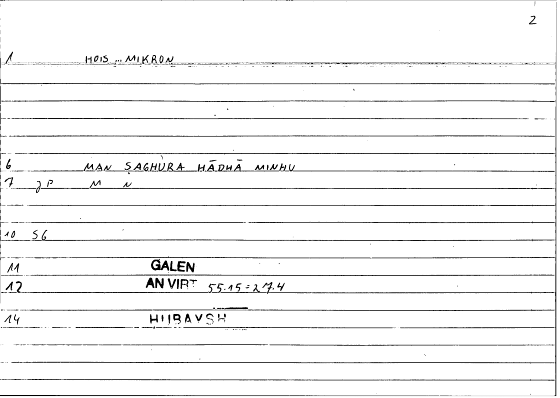 2
1 HOIS ... MIKRON
6 MAN ṢAGHURA HĀDHĀ MINHU
7 JP M N
10 SG
11 GALEN
12 AN VIRT 55.15 = 27.4
14 HUBAYSH